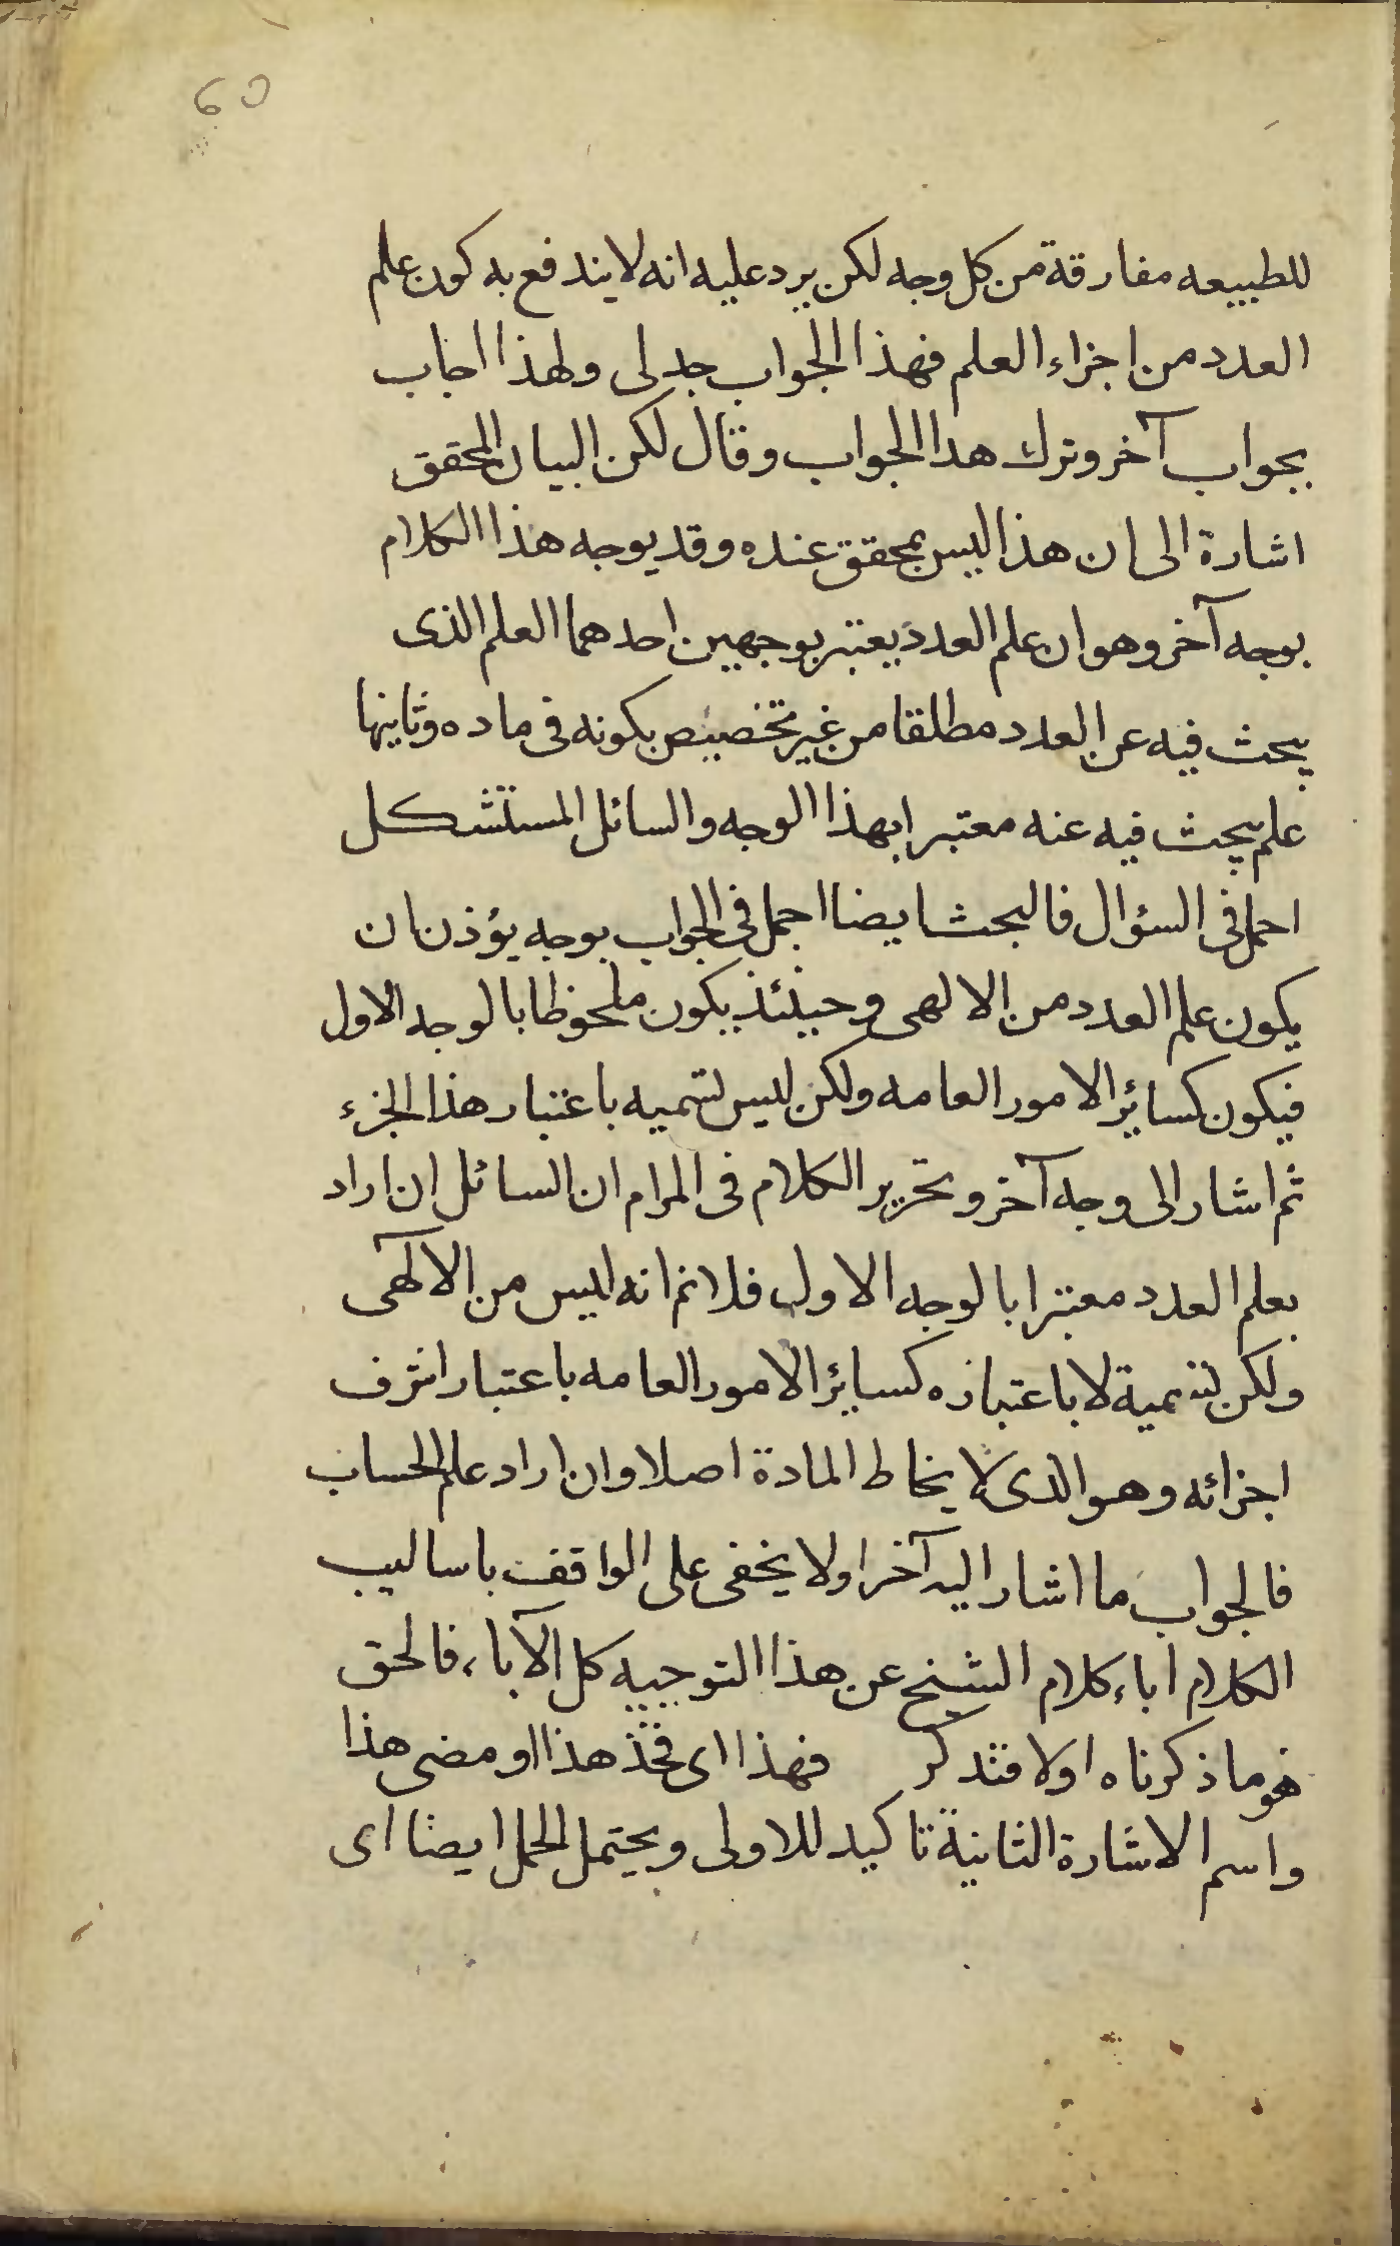 60
للطبيعه مفارقة من كل وجه لكن يرد عليه انه لا يندفع به كون علم
العدد من اجزاء العلم فهذا الجواب جدلى ولهذا اجاب
بجواب آخر وترك هدا الجواب وقال لكن البيان المحقق
اشارة الى ان هذا ليس بمحقق عنده وقد يوجه هذا الكلام
بوجه آخر وهو ان علم العدد يعتبر بوجهين احدهما العلم الذى
يبحث فيه عن العدد مطلقا من غير تخصيص بكونه فى ماده وثاينها
علم يبحث فيه عنه معتبرا بهذا الوجه والسائل المستشكل
احمل فى السؤال فالبحث ايضا اجمل فى الجواب بوجه يؤذن ان
يكون علم العدد من الالهى وحينئذ يكون ملحوظا بالوجه الاول
فيكون كسائر الامور العامه ولكن ليس لتسميه باعتبار هذا الجزء
ثم اشار الى وجه آخر وتحرير الكلام فى المرام ان السائل ان اراد
بعلم العدد معتبرا بالوجه الاول فلانم انه ليس من الالٓهى
ولكن لتسمية لا باعتباره كسائر الامور العامه باعتبار اشرف
اجزائه وهو الدى لا يخاط المادة اصلا وان اراد علم الحساب
فالجواب ما اشار اليه آخرا ولا يخفى على الواقف باساليب
الكلام اباء كلام الشيخ عن هذا التوجيه كل الآباء فالحق
هو ما ذكرناه اولا فتدكر فهذا اى فخذ هذا او مضى هذا
واسم الاشارة الثانية تاكيد للاولى ويحتمل الحمل ايضا اى